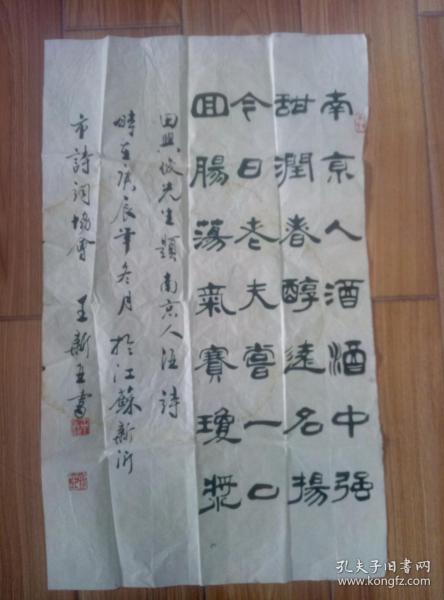 南京人酒酒中强
甜润春醇远名扬
今日老夫尝一口
回腸荡氣赛瓊漿
田興俊先生题南京人酒诗
時在庚辰年冬月於江蘇新沂
市詩词協會 王新五書
孔夫子旧书网
www.kongfz.com